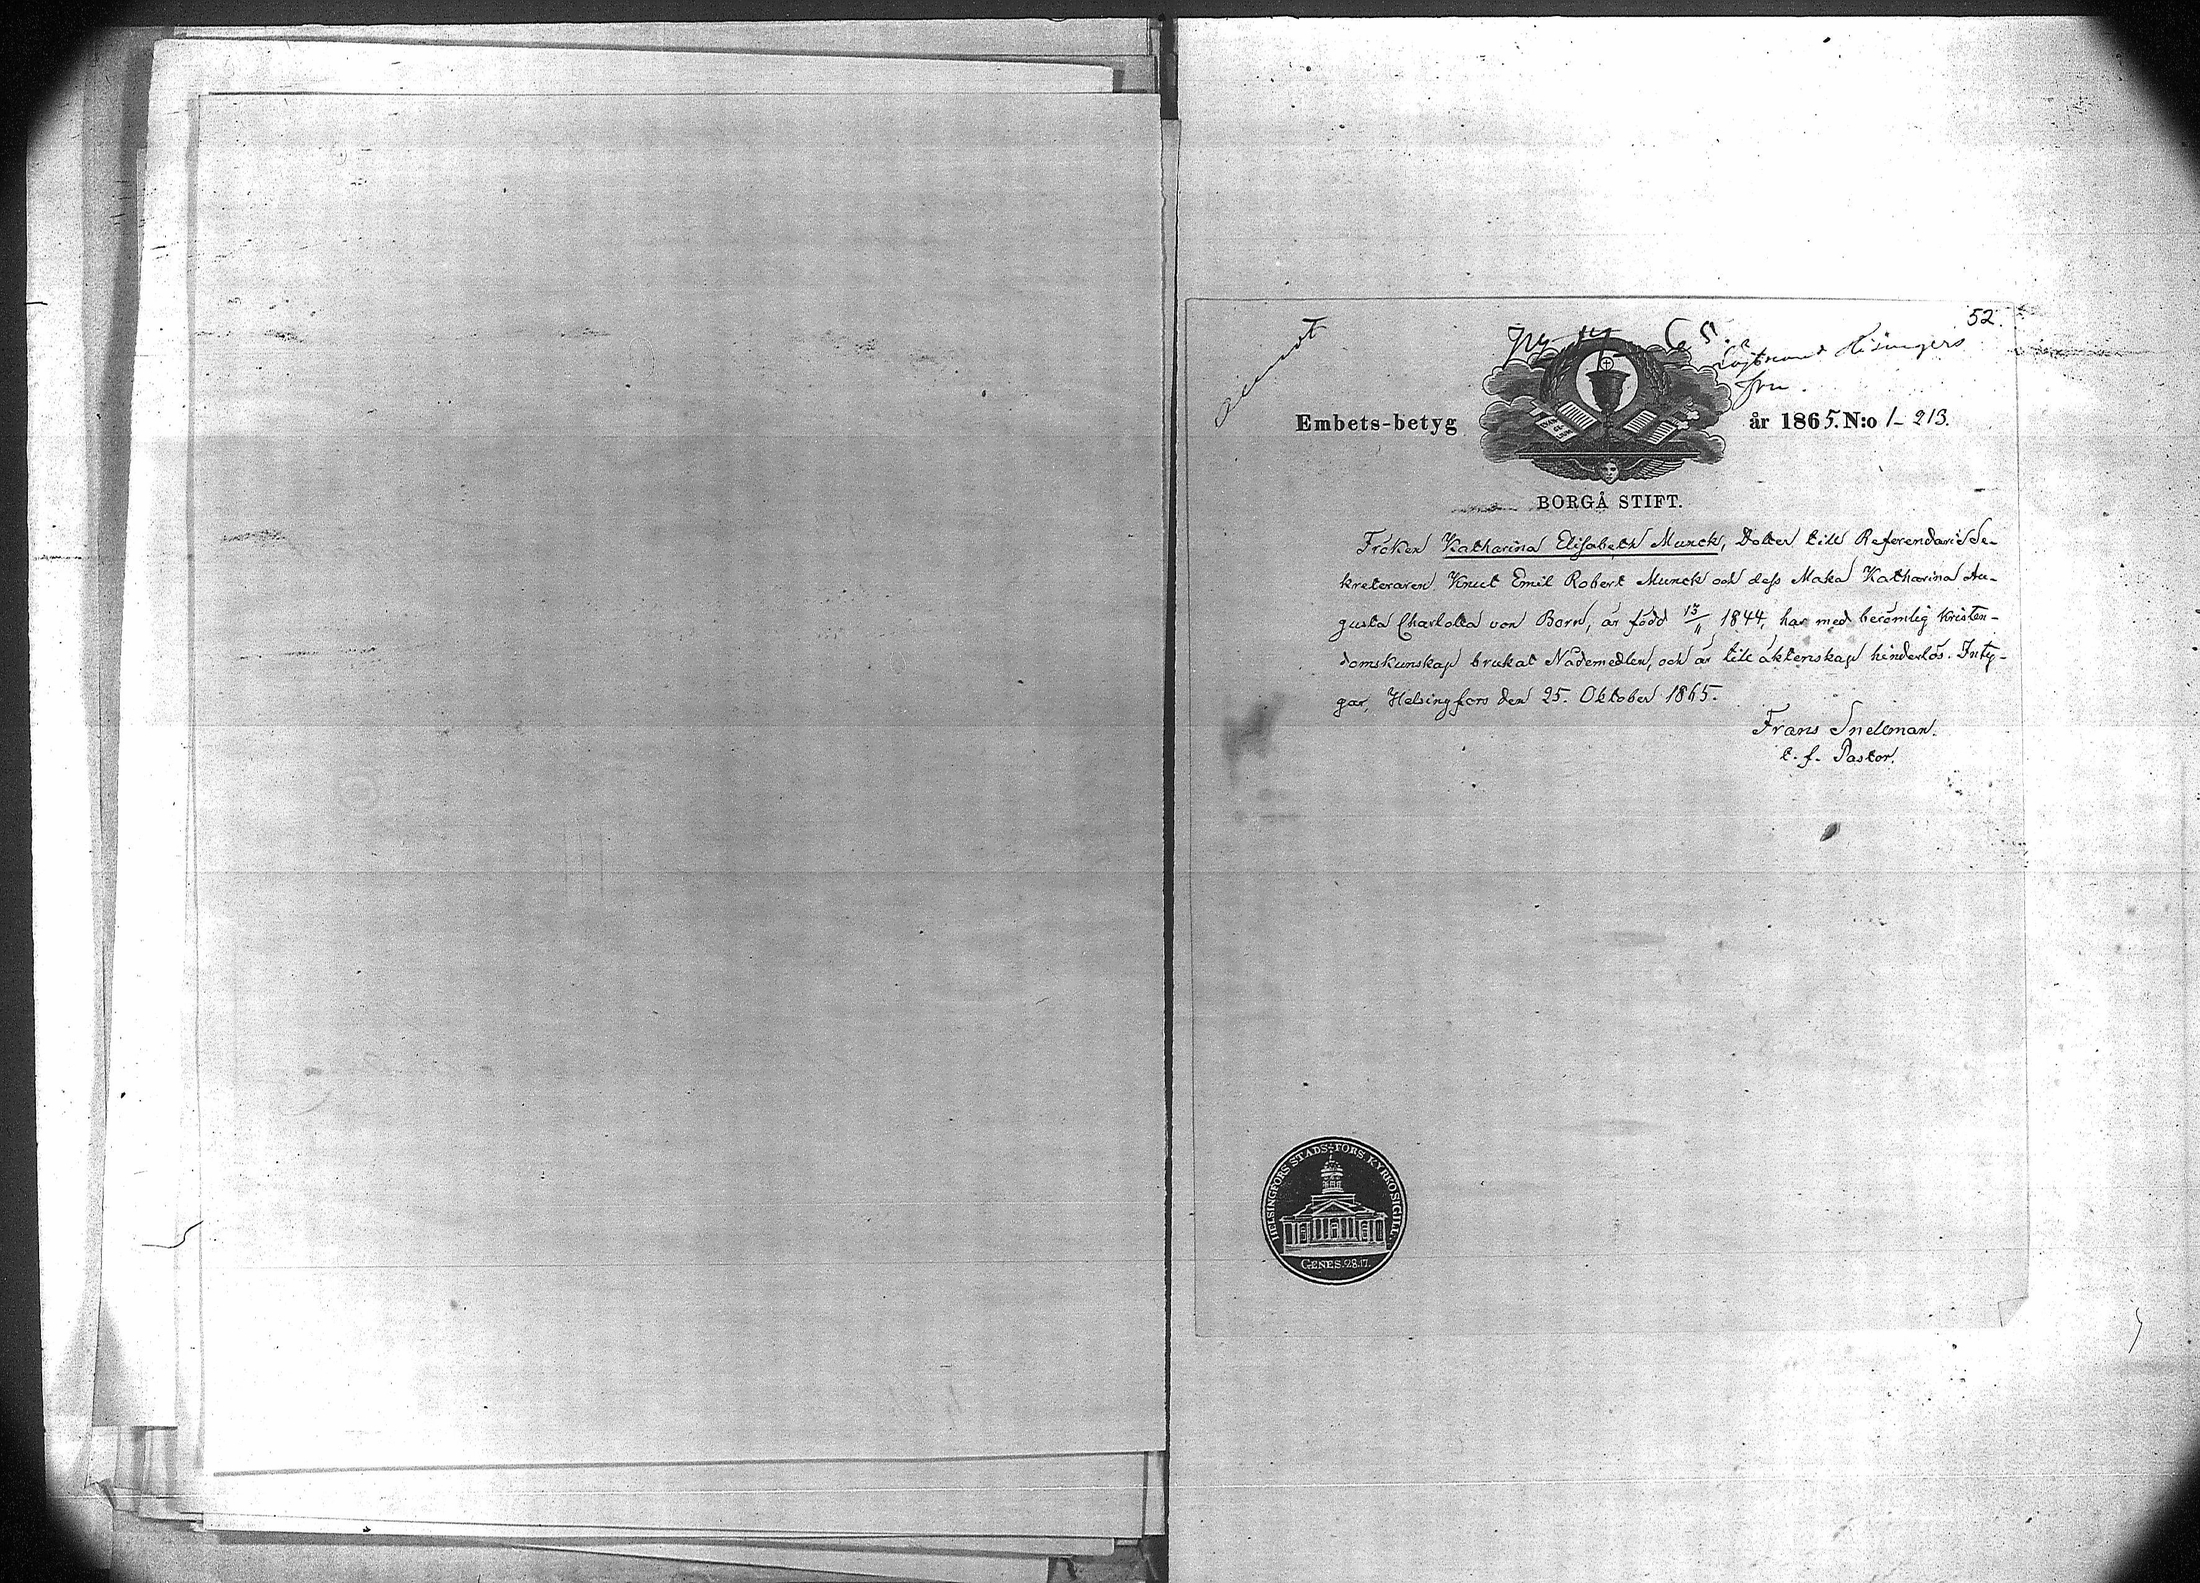 52.
Hisingers
fru.
Embets-betyg år 1865. N:o 1-213.
BORGÅ STIFT.
Fröken Katharina Elisabeth Munck, Dotter till Referendarie Se-
kreteraren Knut Emil Robert Munck och dess Maka Katharina Au-
gusta Charlotta von Born, är född 13/11 1844, har med berömlig Kristen-
domskunskap brukat Nådemedlen, och är till äktenskap hinderlös. Inty-
gar, Helsingfors den 25. Oktober 1865.
Frans Snellman.
t. f. Pastor.
HELSINGFORS STADS-FÖRS KYRKOSIGILL.
GENES. 28.17.